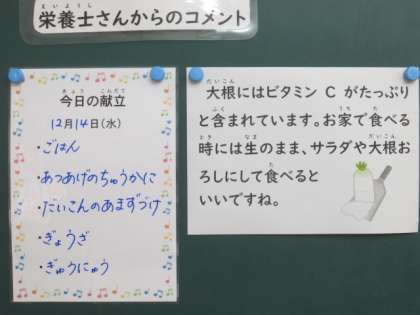 栄養士さんからのコメント
今日の献立
12月14日(水)
・ごはん
・あつあげのちゅうかに
・だいこんのあまずづけ
・ぎょうざ
・ぎゅうにゅう
大根にはビタミン C がたっぷり
と含まれています。お家で食べる
時には生のまま、サラダや大根お
ろしにして食べると
いいですね。